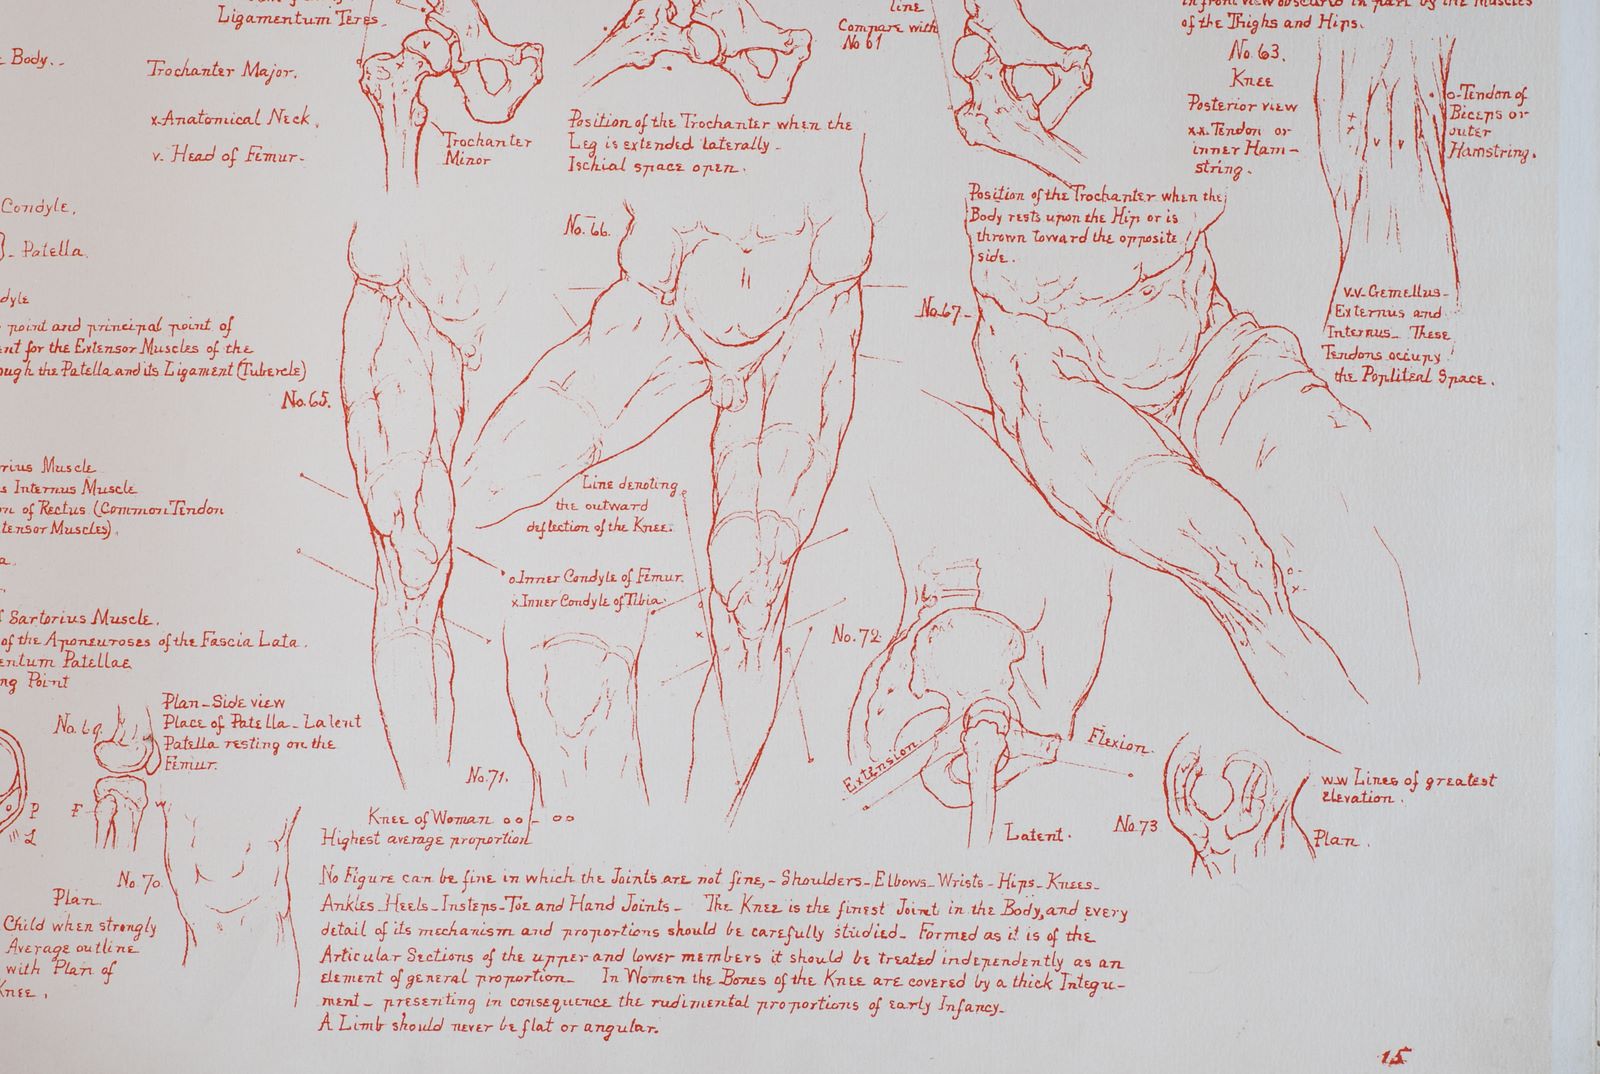 Ligamentum Teres
Body.
Trochanter Major.
x-Anatomical Neck.
v. Head of Femur-
Trochanter
Minor
Condyle,
- Patella.
dyle
point and principal point of
ent for the Extensor Muscles of the
ough the Patella and its Ligament (Tubercle)
No. 65.
rius Muscle
s Internus Muscle
on of Rectus (Common Tendon
tensor Muscles).
a.
f Sartorius Muscle.
of the Aponeuroses of the Fascia Lata.
entum Patellae
ng Point
Position of the Trochanter when the
Leg is extended laterally -
Ischial space open.
No. 66.
Line denoting
the outward
deflection of the Knee.
o. Inner Condyle of Femur.
x. Inner Condyle of Tibia
line
Compare with
No 61
Position of the Trochanter when the
Body rests upon the Hip or is
thrown toward the opposite
side.
No. 67-
in front view obscured in part by the Muscles
of the Thighs and Hips.
No. 63.
Knee
Posterior view
xx. Tendon or
inner Ham-
string.
o-Tendon of
Biceps or
outer
Hamstring.
v.v-Gemellus-
Externus and
Internus- These
Tendons occupy
the Popliteal Space.
No. 69.
Plan-Side view
Place of Patella-Latent
Patella resting on the
Femur.
F
P
L
No. 70.
Plan
Child when strongly
Average outline
with Plan of
Knee,
No. 71.
Knee of Woman oo - oo
Highest average proportion
No. 72.
Extension
Flexion.
Latent.
No. 73
w.w Lines of greatest
elevation.
Plan.
No Figure can be fine in which the Joints are not fine,- Shoulders-Elbows-Wrists-Hips-Knees-
Ankles-Heels-Insteps-Toe and Hand Joints- The Knee is the finest Joint in the Body, and every
detail of its mechanism and proportions should be carefully studied- Formed as it is of the
Articular Sections of the upper and lower members it should be treated independently as an
element of general proportion- In Women the Bones of the Knee are covered by a thick Integu-
ment- presenting in consequence the rudimental proportions of early Infancy-
A Limb should never be flat or angular.
15